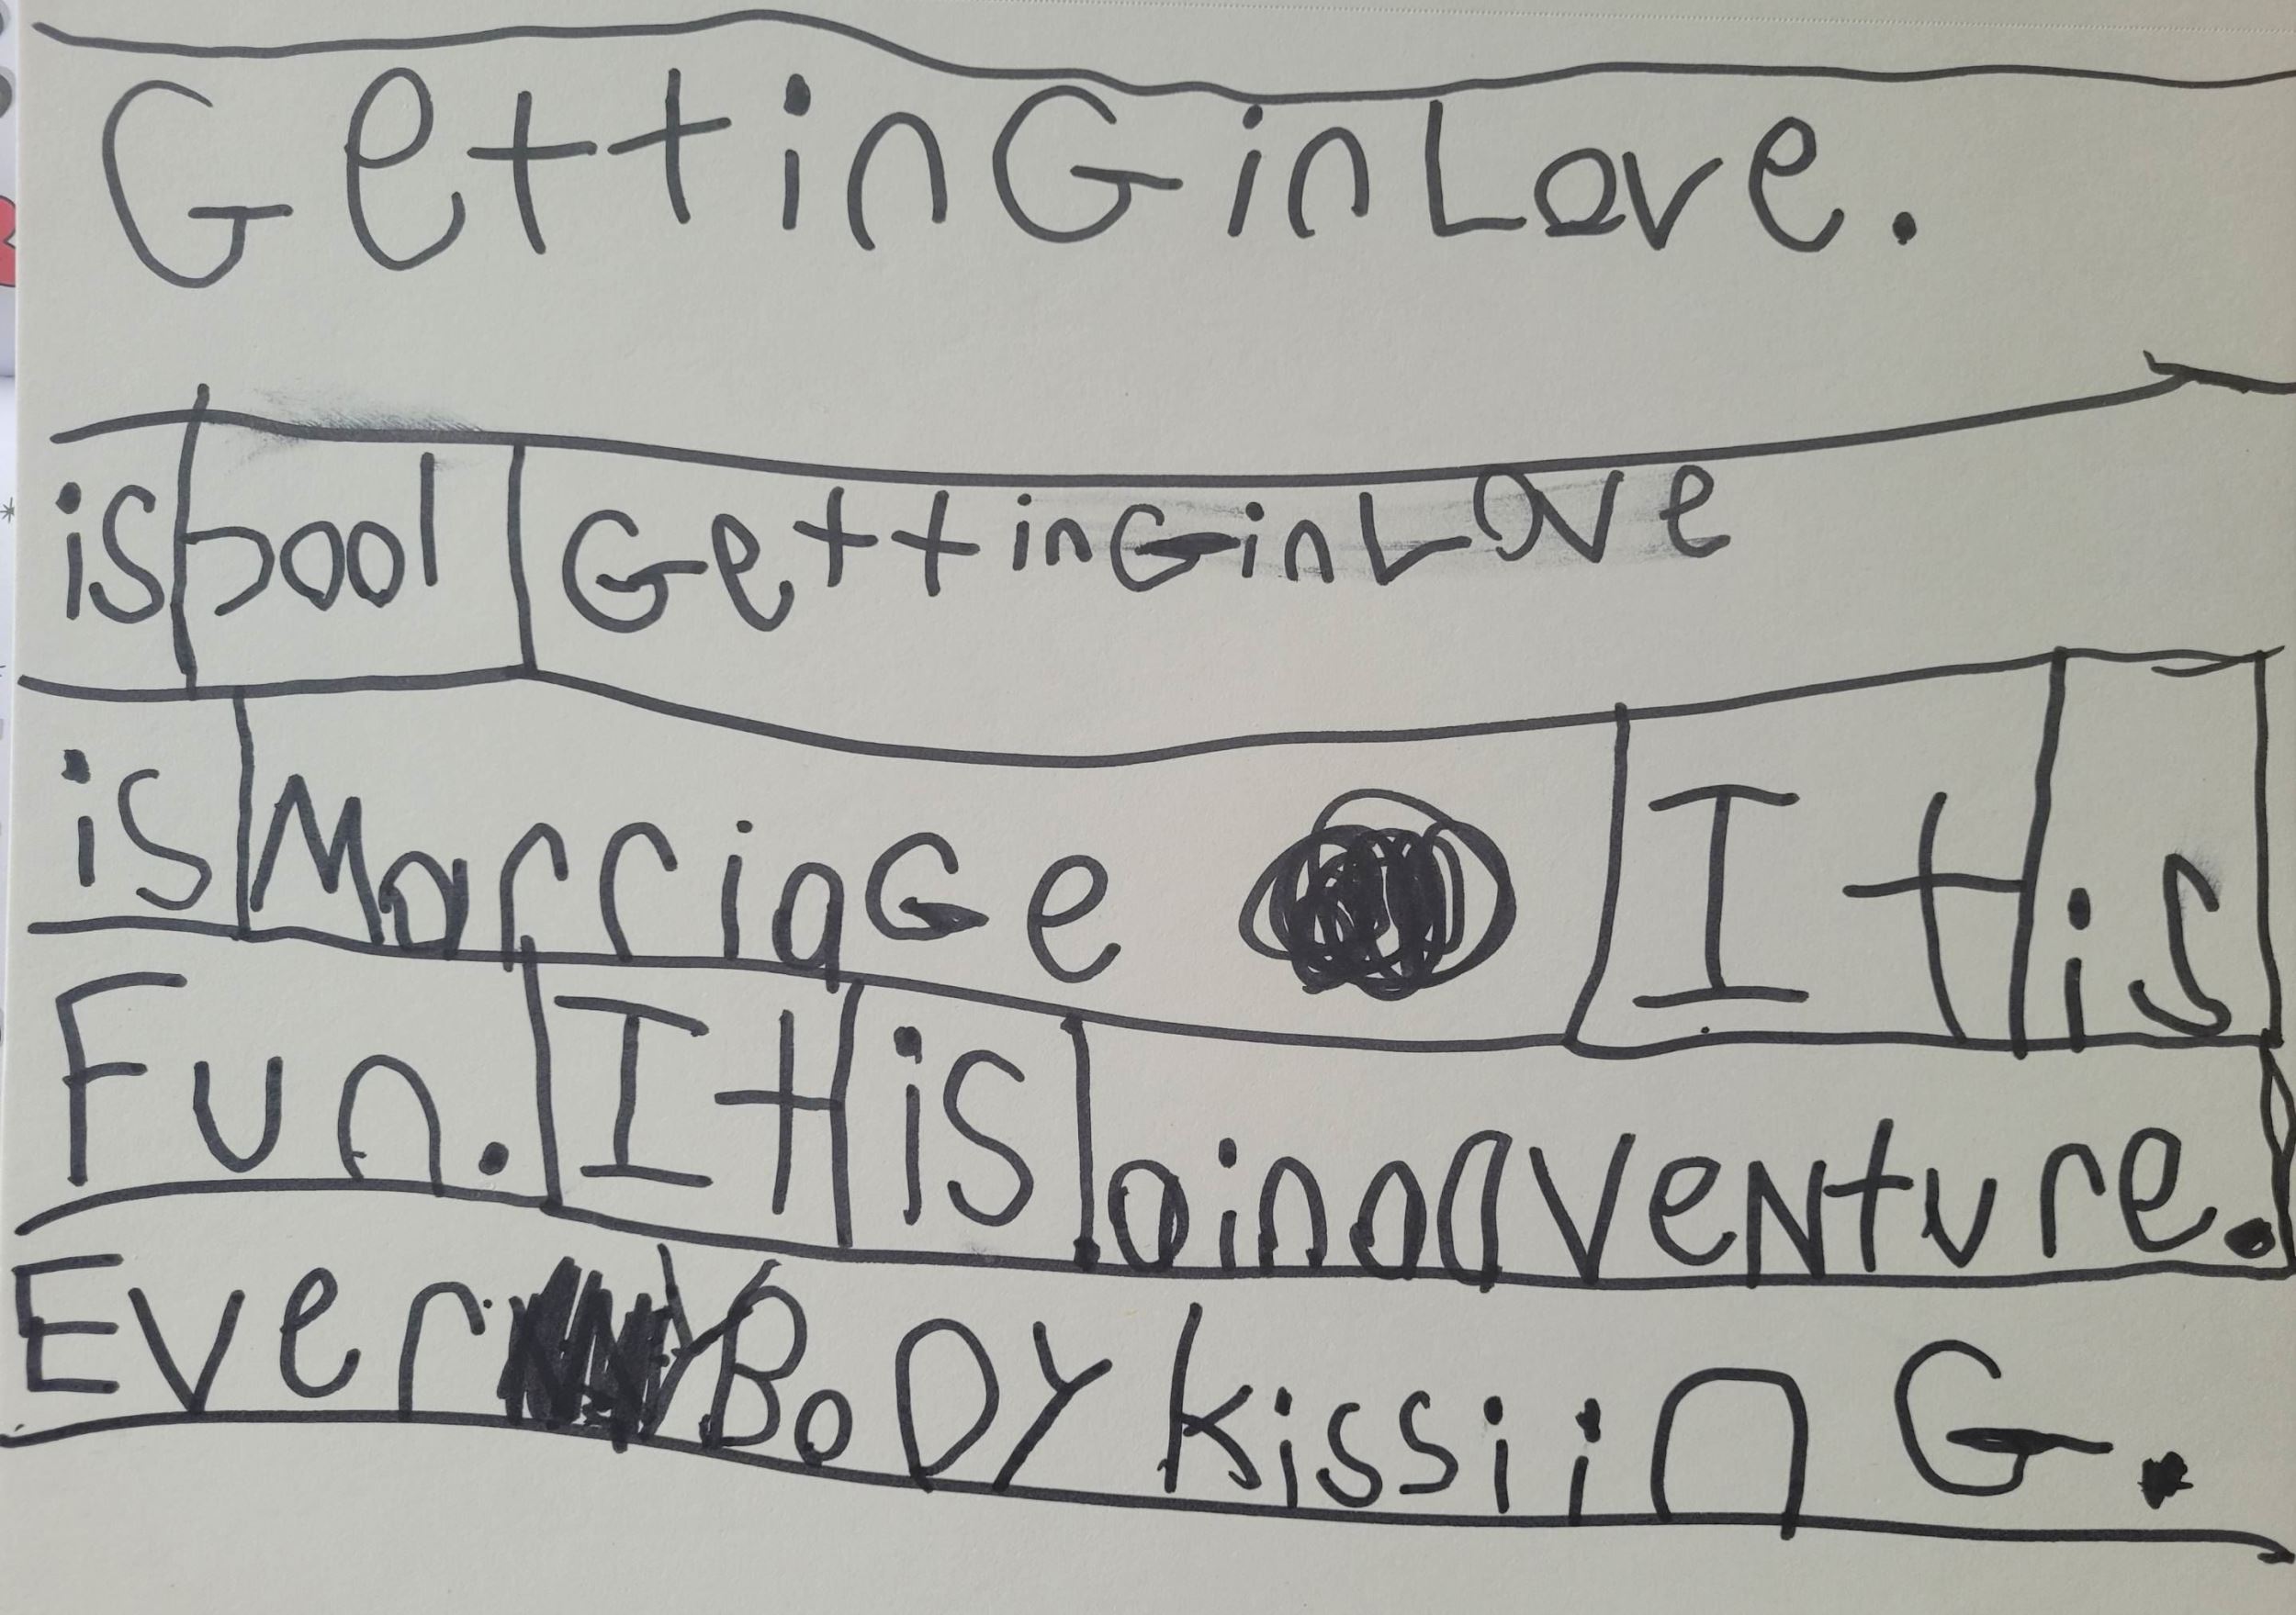 GettinG in Love.
is pool GettinG in Love
is MarriaGe It is
Fun. It is ainadVeNture.
EverYBoDY kissiinG.